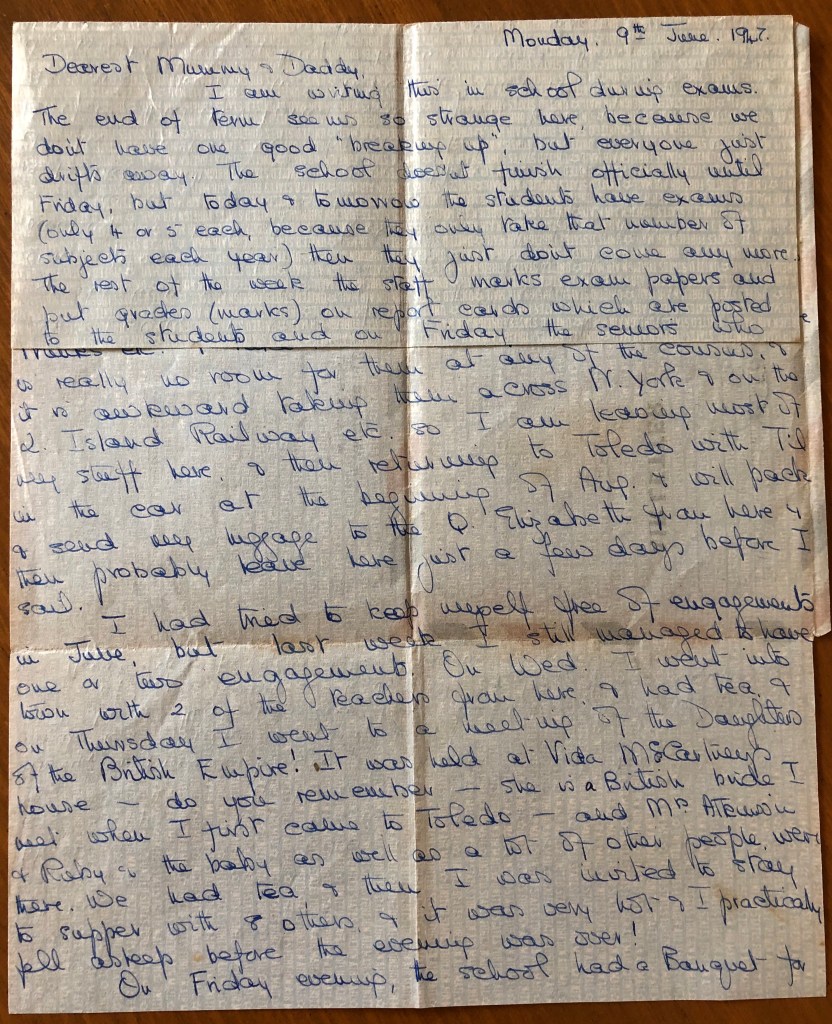 Monday, 9th June. 1947.
Dearest Mummy & Daddy,
I am writing this in school during exams.
The end of term seems so strange here, because we
don't have one good "breaking up", but everyone just
drifts away. The school doesn't finish officially until
Friday, but today & tomorrow the students have exams
(only 4 or 5 each, because they only take that number of
subjects each year) then they just don't come any more.
The rest of the week the staff marks exam papers and
put grades (marks) on report cards which are posted
to the students and on Friday the seniors who
is really no room for them at any of the cousins, &
it is awkward taking them across N. York & on the
L. Island Railway etc. so I am leaving most of
my stuff here, & then returning to Toledo with Til
in the car at the beginning of Aug. & will pack
& send my luggage to the Q. Elizabeth from here &
then probably leave here just a few days before I
sail.
I had tried to keep myself free of engagements
in June, but last week I still managed to have
one or two engagements. On Wed. I went into
town with 2 of the teachers from here, & had tea, &
on Thursday I went to a meeting of the Daughters
of the British Empire! It was held at Vida McCartneys
house – do you remember – she is a British bride I
met when I first came to Toledo – and Mrs
& Ruby & the baby as well as a lot of other people, were
there. We had tea & then I was invited to stay
to supper with 8 others, & it was very hot & I practically
fell asleep before the evening was over!
On Friday evening, the school had a Banquet for